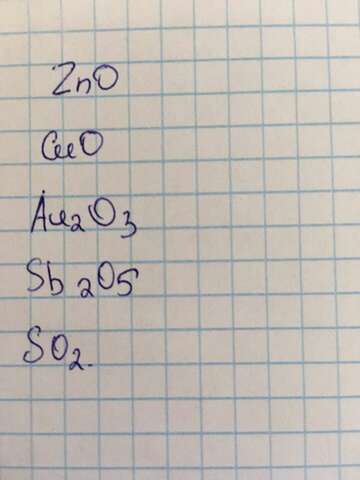 ZnO
CuO
Au2O3
Sb2O5
SO2.